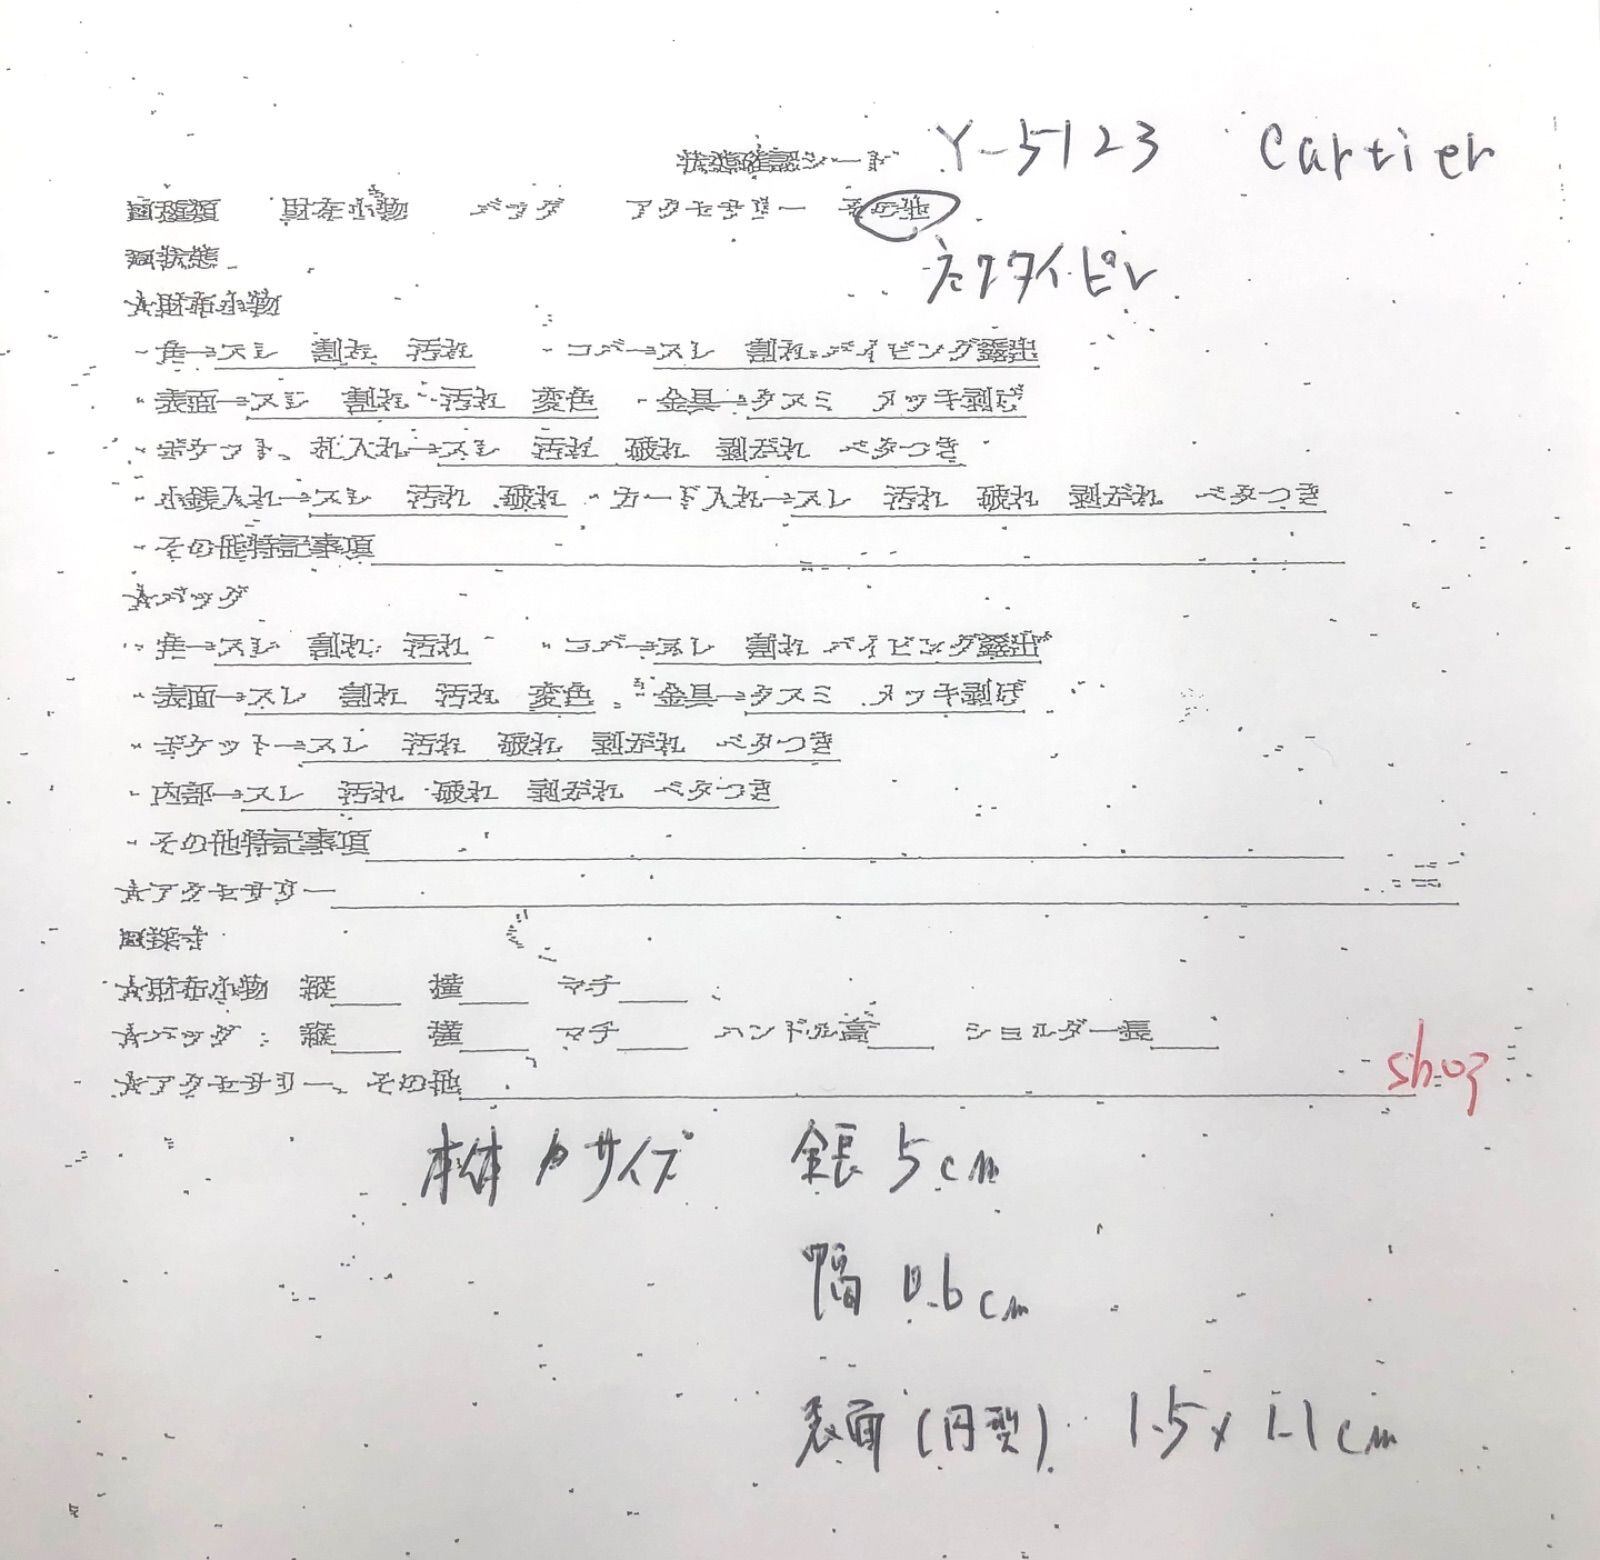 状態確認シート Y-5123 Cartier
■種類 財布小物 バッグ アクセサリー その他
ネクタイピン
■状態
☆財布小物
・角→スレ 割れ 汚れ ・コバ→スレ 割れ パイピング露出
・表面→スレ 割れ 汚れ 変色 ・金具→クスミ メッキ剥げ
・ポケット、札入れ→スレ 汚れ 破れ 剥がれ ベタつき
・小銭入れ→スレ 汚れ 破れ ・カード入れ→スレ 汚れ 破れ 剥がれ ベタつき
・その他特記事項
☆バッグ
・角→スレ 割れ 汚れ ・コバ→スレ 割れ パイピング露出
・表面→スレ 割れ 汚れ 変色 ・金具→クスミ メッキ剥げ
・ポケット→スレ 汚れ 破れ 剥がれ ベタつき
・内部→スレ 汚れ 破れ 剥がれ ベタつき
・その他特記事項
☆アクセサリー
■採寸
☆財布小物 縦 横 マチ
☆バッグ 縦 横 マチ ハンドル高 ショルダー長
☆アクセサリー、その他
本体 サイズ 全長 5cm
幅 0.6cm
表面(円型) 1.5x1.1cm